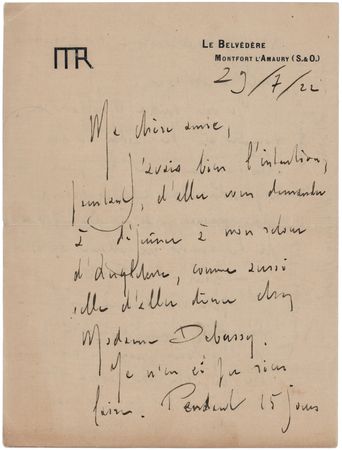 MR
LE BELVÉDÈRE
MONTFORT L'AMAURY (S.&O.)
29/7/22
Ma chère amie,
J'avais bien l'intention,
pourtant, d'aller vous demander
à déjeuner à mon retour
d'Angleterre, comme aussi
celle d'aller dîner chez
Madame Debussy.
Je n'en ai pu rien
faire. Pendant 15 jours